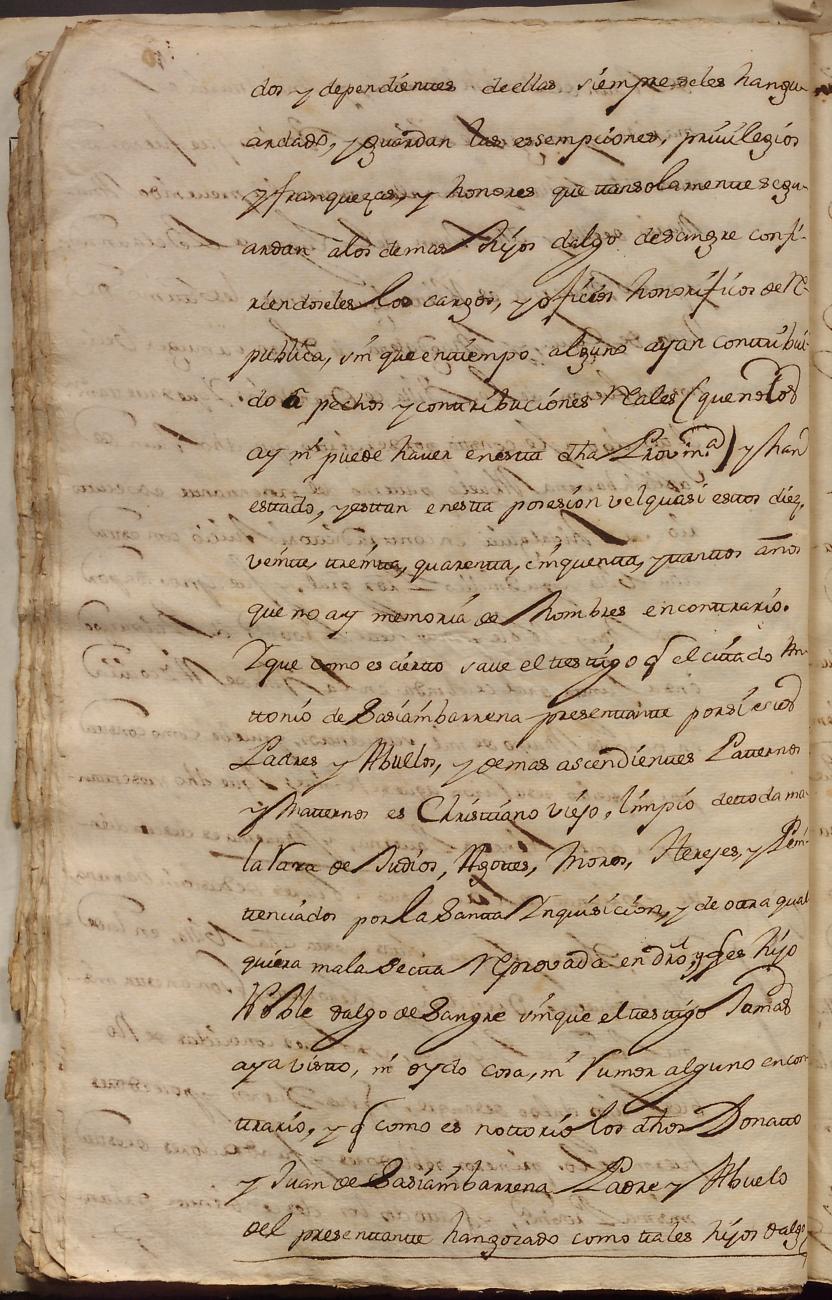 dos y dependientes de ellas siempre seles hangu-
ardado, y guardan las essempciones, privilegios
y franquezas, y honores que tansolamente segu-
ardan alos demas hijos dalgo desangre confi-
riendoseles los cargos, y oficios honorificos de Re-
publica, sin que entiempo alguno ayan contribui-
do a pechos y contribuciones Reales (que no los
ay ni puede haver enesta dha Provinª) y han
estado, y estan enesta posesion vel quasi estos diez,
veinte, treinta, quarenta, cinquenta, y tantos años
que no ay memoria de hombres encontrario.
Yque como es cierto save el testigo q̃ el citado An-
ttonio de Sasiambarrena presentante porsi es us
Padres y Abuelos, y demas ascendientes Patternos
y Matternos es Christiano viejo, limpio de ttoda ma-
la Raza de Judios, Agotes, Moros, Herejes, y Peni-
tenciados por la Santa Inquisicion, y de otra qual
quiera mala secta Reprovada en dro, y q̃ es hijo
Noble dalgo de Sangre sinque el testigo Jamas
aya visto, ni oydo cosa, ni Rumor alguno encon-
trario, y q̃ como es nottorio los dhos Donatto
y Juan de Sasiambarrena Padre y Abuelo
del presentante hangozado como tales hijos dalgo